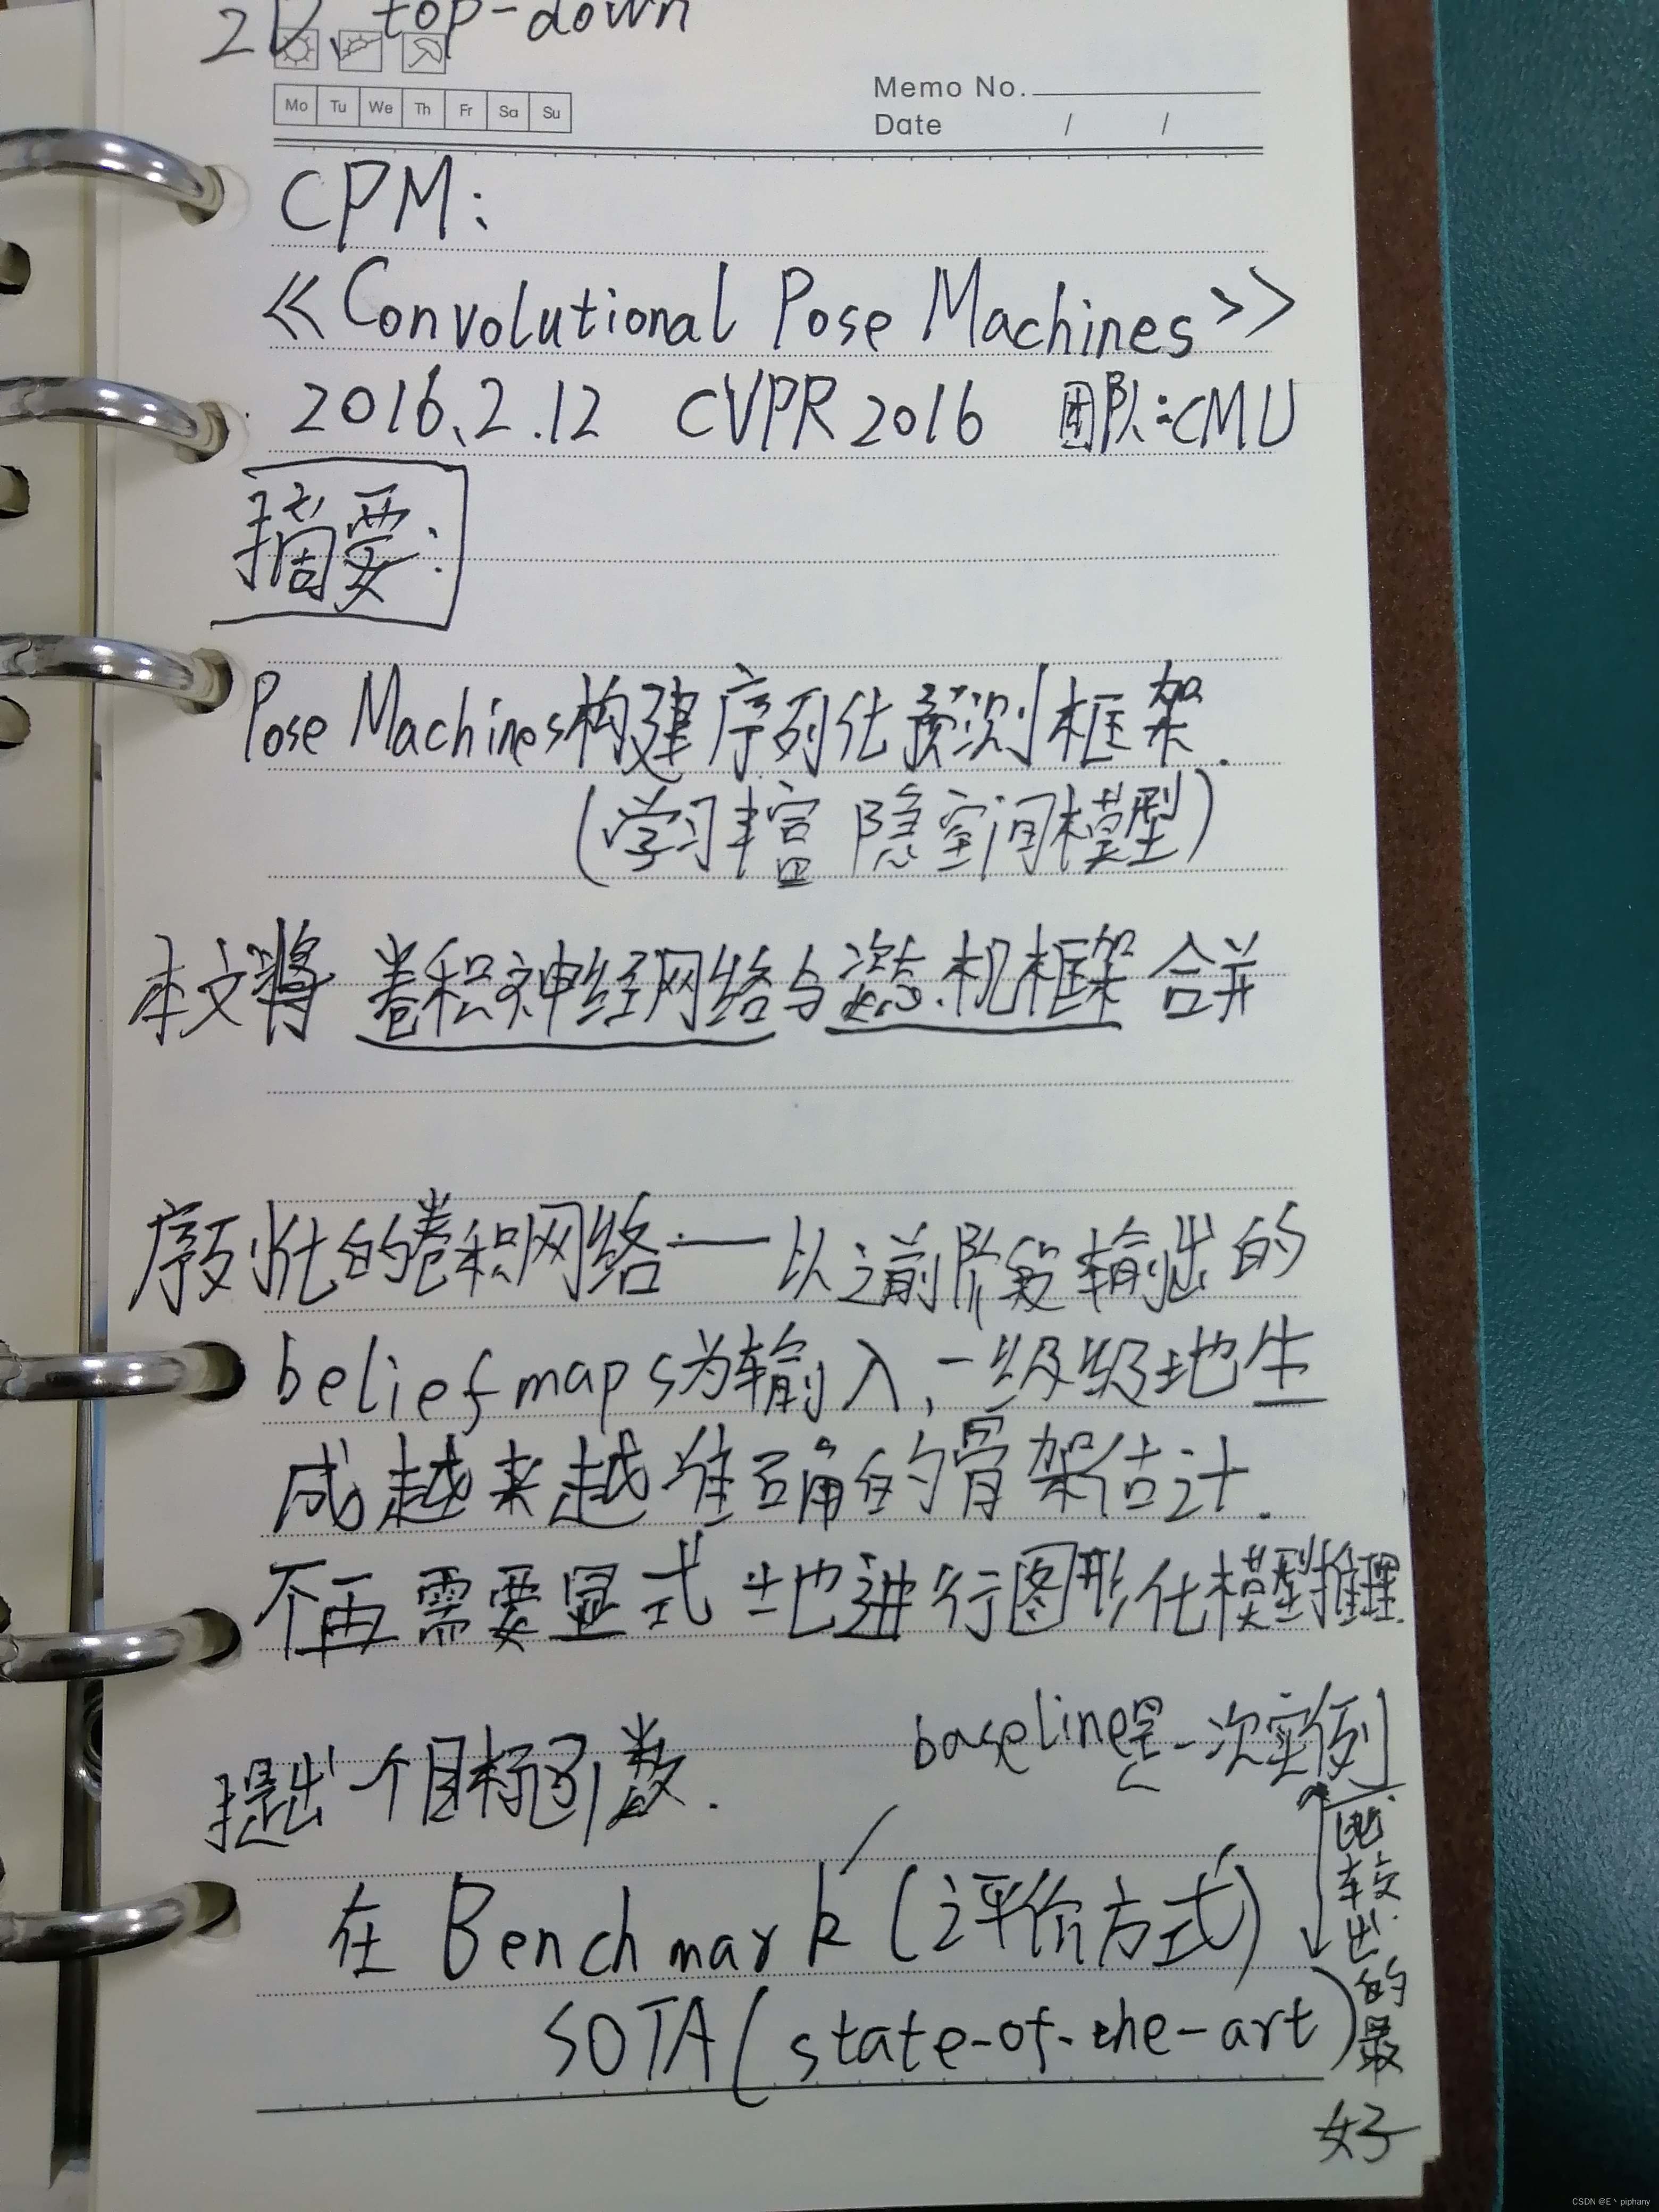 2D、top-down
Mo Tu We Th Fr Sa Su
Memo No.
Date / /
CPM:
《Convolutional Pose Machines》
2016.2.12 CVPR 2016 团队:CMU
摘要:
Pose Machines构建序列化预测框架.
(学习丰富 隐空间模型)
本文将 卷积神经网络与姿态机框架 合并
序列化的卷积网络——以之前阶段输出的
belief maps为输入,一级级地生
成越来越准确的骨架估计.
不再需要显式地进行图形化模型推理.
baseline是一次实例
提出一个目标函数.
比较出的最好
在 Benchmark (评价方式)
SOTA(state-of-the-art)
CSDN @E丶piphany